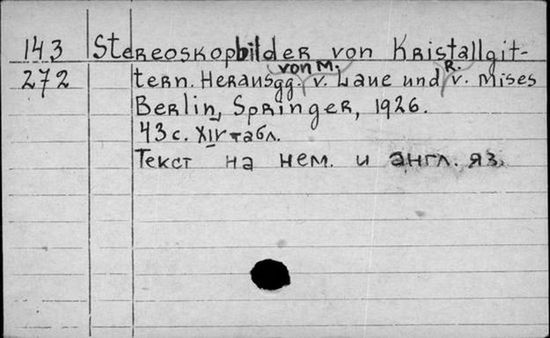 143 Stereoskopbilder von Kristallgit-
von M. R.
272 tern. Herausgg. v. Laue und v. Mises
Berlin, Springer, 1926.
43 с. XIV табл.
Текст на нем. и англ. яз.